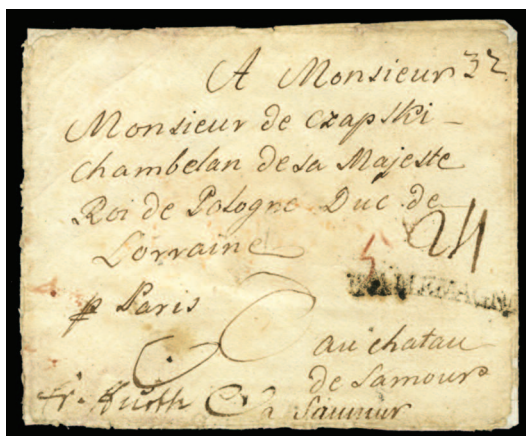 A Monsieur 32
Monsieur de Czapski
Chambelan de sa Majeste
Roi de Pologne Duc de
Lorraine
24
D'ALLEMAGNE
p Paris
au chatau
de Samour
fr.
a Saumur